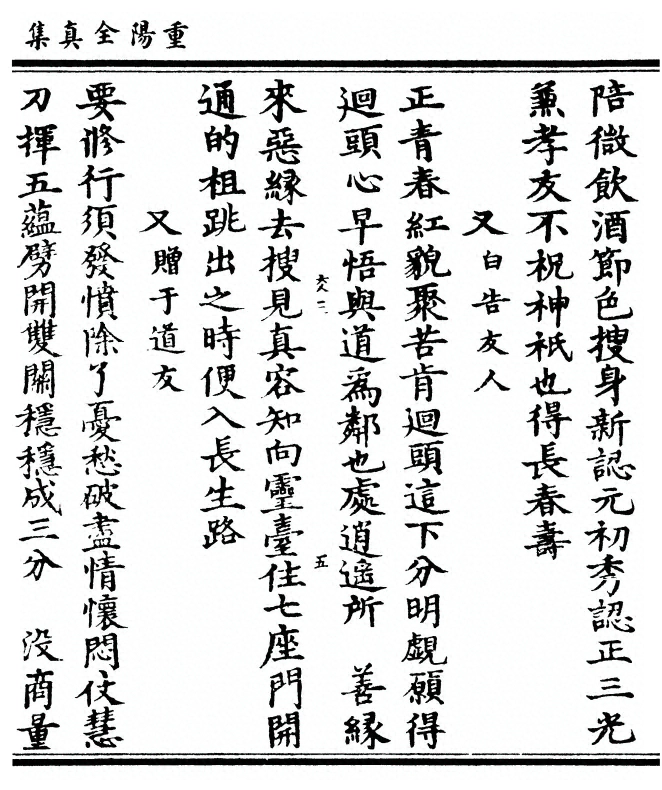 重陽全真集
陪微飲酒節色搜身新認元初秀認正三光
兼孝友不祝神祇也得長春壽
又白告友人
正青春紅貌聚苦肯迴頭這下分明覷願得
迴頭心早悟與道爲鄰也處逍遙所　善緣
來惡緣去搜見真容知向靈臺住七座門開
交三　五
通的祖跳出之時便入長生路
又贈于道友
要修行須發憤除了憂愁破盡情懷悶仗慧
刀揮五蘊劈開雙關穩穩成三分　没商量